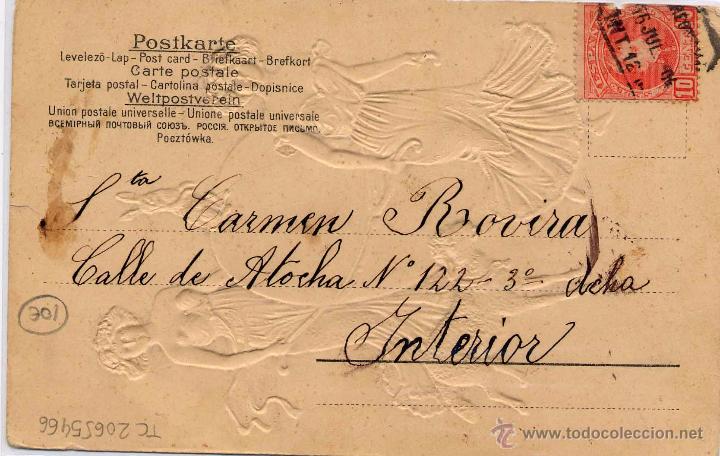 Postkarte
Levelező-Lap – Post card – Briefkaart – Brefkort
Carte postale
Tarjeta postal – Cartolina postale – Dopisnice
Weltpostverein
Union postale universelle – Unione postale universale
ВСЕМІРНЫЙ ПОЧТОВЫЙ СОЮЗЪ. РОССІЯ. ОТКРЫТОЕ ПИСЬМО.
Pocztówka.
Sta Carmen Rovira
Calle de Atocha Nº 122 – 3º dcha
Interior
10€
TC 20655466
www.todocoleccion.net